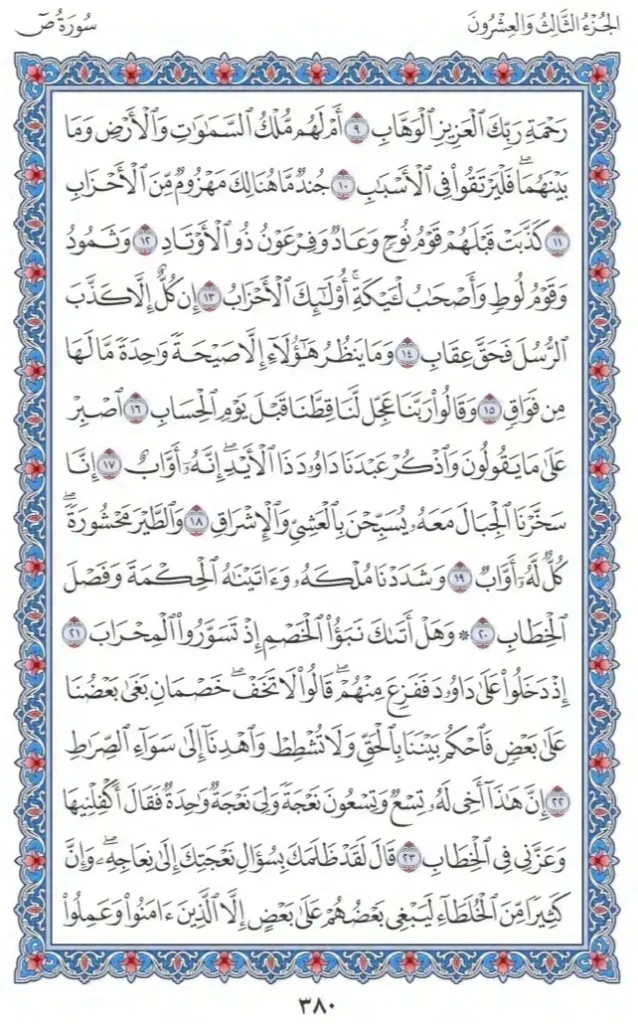 الجُزْءُ الثَّالِثُ وَالعِشْرُونَ
سُورَةُ صٓ
رَحْمَةِ رَبِّكَ ٱلْعَزِيزِ ٱلْوَهَّابِ ٩ أَمْ لَهُم مُّلْكُ ٱلسَّمَٰوَٰتِ وَٱلْأَرْضِ وَمَا
بَيْنَهُمَاۖ فَلْيَرْتَقُوا۟ فِى ٱلْأَسْبَٰبِ ١٠ جُندٌ مَّا هُنَالِكَ مَهْزُومٌ مِّنَ ٱلْأَحْزَابِ
١١ كَذَّبَتْ قَبْلَهُمْ قَوْمُ نُوحٍ وَعَادٌ وَفِرْعَوْنُ ذُو ٱلْأَوْتَادِ ١٢ وَثَمُودُ
وَقَوْمُ لُوطٍ وَأَصْحَٰبُ لْـَٔيْكَةِۚ أُو۟لَٰٓئِكَ ٱلْأَحْزَابُ ١٣ إِن كُلٌّ إِلَّا كَذَّبَ
ٱلرُّسُلَ فَحَقَّ عِقَابِ ١٤ وَمَا يَنظُرُ هَٰٓؤُلَآءِ إِلَّا صَيْحَةً وَٰحِدَةً مَّا لَهَا
مِن فَوَاقٍ ١٥ وَقَالُوا۟ رَبَّنَا عَجِّل لَّنَا قِطَّنَا قَبْلَ يَوْمِ ٱلْحِسَابِ ١٦ ٱصْبِرْ
عَلَىٰ مَا يَقُولُونَ وَٱذْكُرْ عَبْدَنَا دَاوُۥدَ ذَا ٱلْأَيْدِۖ إِنَّهُۥٓ أَوَّابٌ ١٧ إِنَّا
سَخَّرْنَا ٱلْجِبَالَ مَعَهُۥ يُسَبِّحْنَ بِٱلْعَشِىِّ وَٱلْإِشْرَاقِ ١٨ وَٱلطَّيْرَ مَحْشُورَةًۖ
كُلٌّ لَّهُۥٓ أَوَّابٌ ١٩ وَشَدَدْنَا مُلْكَهُۥ وَءَاتَيْنَٰهُ ٱلْحِكْمَةَ وَفَصْلَ
ٱلْخِطَابِ ٢٠ ۞ وَهَلْ أَتَىٰكَ نَبَؤُا۟ ٱلْخَصْمِ إِذْ تَسَوَّرُوا۟ ٱلْمِحْرَابَ ٢١
إِذْ دَخَلُوا۟ عَلَىٰ دَاوُۥدَ فَفَزِعَ مِنْهُمْۖ قَالُوا۟ لَا تَخَفْۖ خَصْمَانِ بَغَىٰ بَعْضُنَا
عَلَىٰ بَعْضٍ فَٱحْكُم بَيْنَنَا بِٱلْحَقِّ وَلَا تُشْطِطْ وَٱهْدِنَآ إِلَىٰ سَوَآءِ ٱلصِّرَٰطِ
٢٢ إِنَّ هَٰذَآ أَخِى لَهُۥ تِسْعٌ وَتِسْعُونَ نَعْجَةً وَلِىَ نَعْجَةٌ وَٰحِدَةٌ فَقَالَ أَكْفِلْنِيهَا
وَعَزَّنِى فِى ٱلْخِطَابِ ٢٣ قَالَ لَقَدْ ظَلَمَكَ بِسُؤَالِ نَعْجَتِكَ إِلَىٰ نِعَاجِهِۦۖ وَإِنَّ
كَثِيرًا مِّنَ ٱلْخُلَطَآءِ لَيَبْغِى بَعْضُهُمْ عَلَىٰ بَعْضٍ إِلَّا ٱلَّذِينَ ءَامَنُوا۟ وَعَمِلُوا۟
٣٨٠